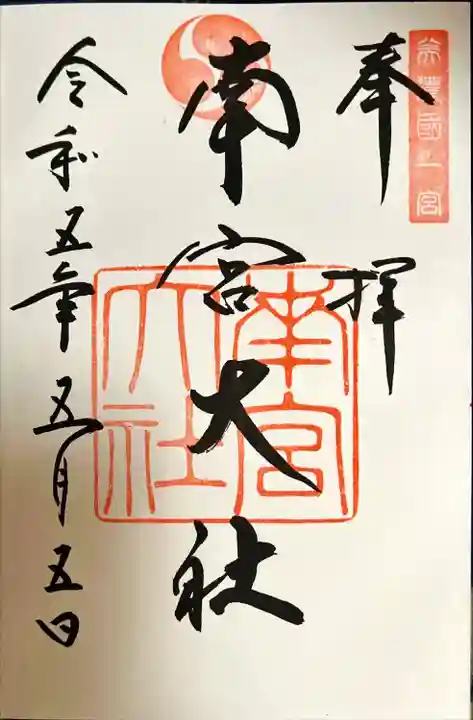 美濃國一宮
奉拝
南宮大社
南宮大社
令和五年五月五日